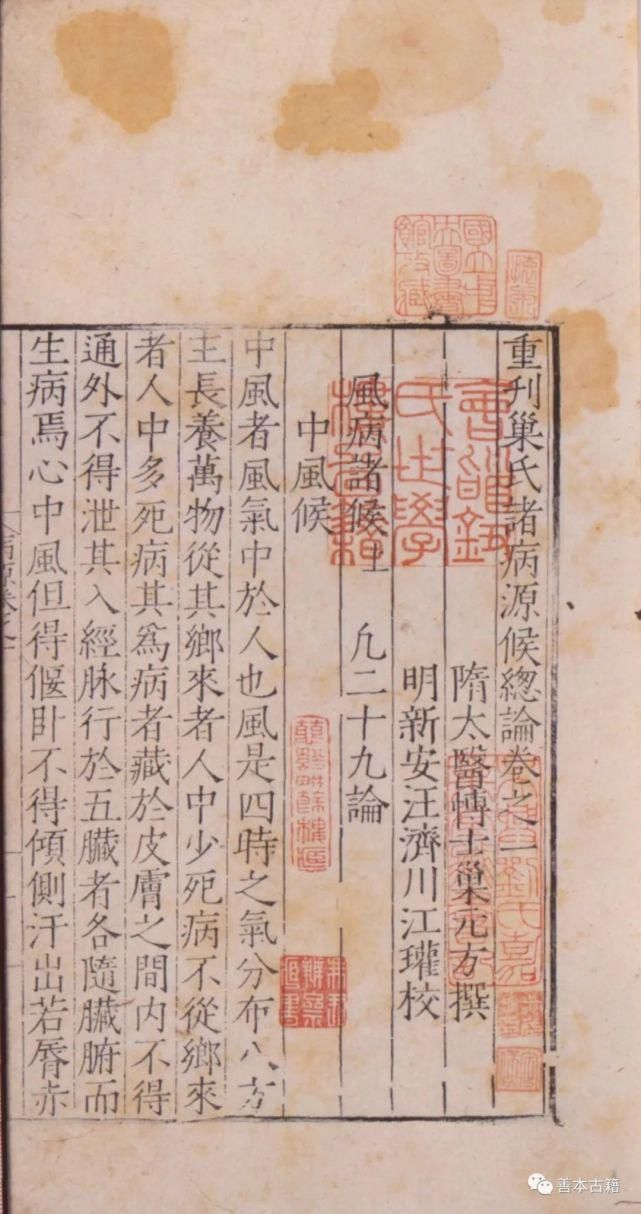 重刊巢氏諸病源候總論卷之一
隋太醫博士巢元方撰
明新安汪濟川江瓘校
風病諸候上 凢二十九論
中風候
中風者風氣中於人也風是四時之氣分布八方
主長養萬物從其鄉來者人中少死病不從鄉來
者人中多死病其爲病者藏於皮膚之間内不得
通外不得泄其入經脉行於五臓者各隨臓腑而
生病焉心中風但得偃卧不得傾側汗出若脣赤
國立中
央圖書
館收藏
善本古籍